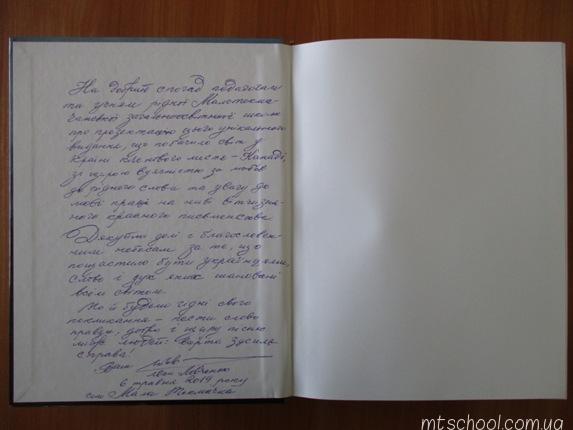 На добрий спогад педагогам
та учням рідної Малотокма-
чанської загальноосвітньої школи
про презентацію цього унікального
видання, що побачило світ у
Країні кленового листя – Канаді,
зі щирою вдячністю за любов
до рідного слова та увагу до
моєї праці на ниві вітчизня-
ного красного письменства.
Дякуємо долі і благословен-
ним небесам за те, що
пощастило бути українцями,
слово і дух яких шановані
всім світом.
Тож будемо гідні свого
покликання – нести слово
правди, добро і щиру пісню
між людей. Варта зусиль
справа!
Ваш
Іван
6 травня 2014 року
село Мала Токмачка
mtschool.com.ua